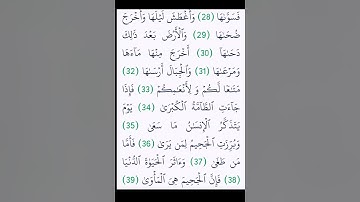 فَسَوَّىٰهَا (28) وَأَغْطَشَ لَيْلَهَا وَأَخْرَجَ
ضُحَىٰهَا (29) وَٱلْأَرْضَ بَعْدَ ذَٰلِكَ
دَحَىٰهَآ (30) أَخْرَجَ مِنْهَا مَآءَهَا
وَمَرْعَىٰهَا (31) وَٱلْجِبَالَ أَرْسَىٰهَا (32)
مَتَٰعًا لَّكُمْ وَ لِأَنْعَٰمِكُمْ (33) فَإِذَا
جَآءَتِ ٱلطَّآمَّةُ ٱلْكُبْرَىٰ (34) يَوْمَ
يَتَذَكَّرُ ٱلْإِنسَٰنُ مَا سَعَىٰ (35)
وَبُرِّزَتِ ٱلْجَحِيمُ لِمَن يَرَىٰ (36) فَأَمَّا
مَن طَغَىٰ (37) وَءَاثَرَ ٱلْحَيَوٰةَ ٱلدُّنْيَا
(38) فَإِنَّ ٱلْجَحِيمَ هِىَ ٱلْمَأْوَىٰ (39)